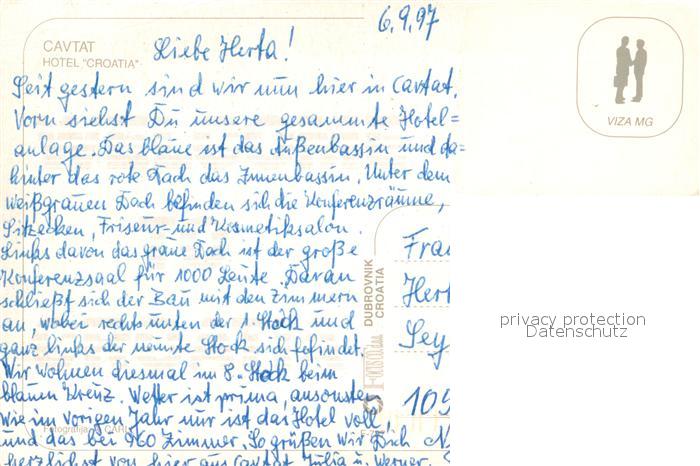 6.9.97
CAVTAT
HOTEL "CROATIA"
Liebe Herta!
Seit gestern sind wir nun hier in Cavtat.
Vorn siehst Du unsere gesammte Hotel=
anlage. Das blaue ist das Außenbassin und da=
hinter das rote Dach das Innenbassin. Unter dem
weißgrauen Dach befinden sich die Konferenzräume,
Sitzecken, Friseur- und Kosmetiksalon.
Links davon das graue Dach ist der große
Konferenzsaal für 1000 Leute. Daran
schließt sich der Bau mit den Zimmern
an, wobei rechts unten der 1. Stock und
ganz links der neunte Stock sich befindet.
Wir wohnen diesmal im 8. Stock beim
blauen Kreuz. Wetter ist prima, ansonsten
wie im vorigen Jahr nur ist das Hotel voll,
und das bei 960 Zimmer. So grüßen wir Dich
herzlichst von hier aus Cavtat Julia u. Werner.
VIZA MG
DUBROVNIK
CROATIA
Frau
Hert
Sey
10
privacy protection
Datenschutz
Fotografija